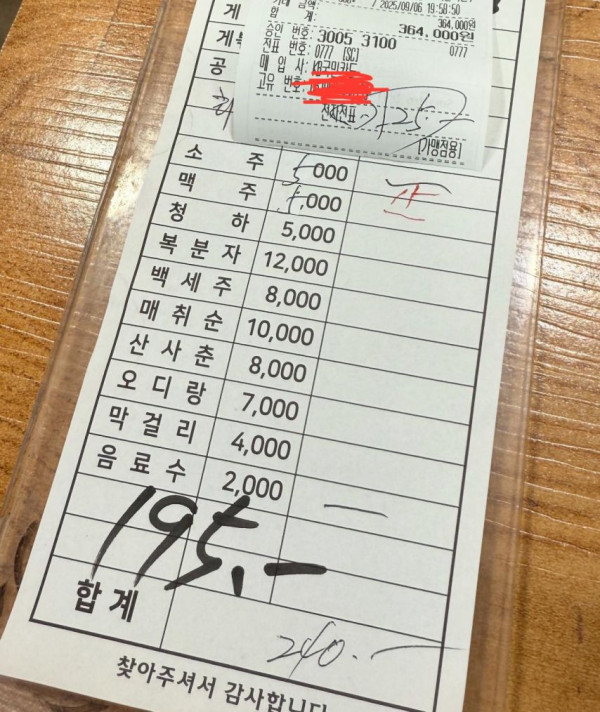 2025/09/06 19:58:50
거래 금액 364,000원
합 계: 364,000원
승인 번호: 3005 3100
전표 번호: 0777 [SC] 0777
매 입 사: KB국민카드
고유 번호:
전자전표
125.-
[가맹점용]
게
게
공
소 주 5,000 一
맥 주 5,000 正
청 하 5,000
복분자 12,000
백세주 8,000
매취순 10,000
산사춘 8,000
오디랑 7,000
막걸리 4,000
음료수 2,000 一
195.-
합계 240.-
찾아주셔서 감사합니다